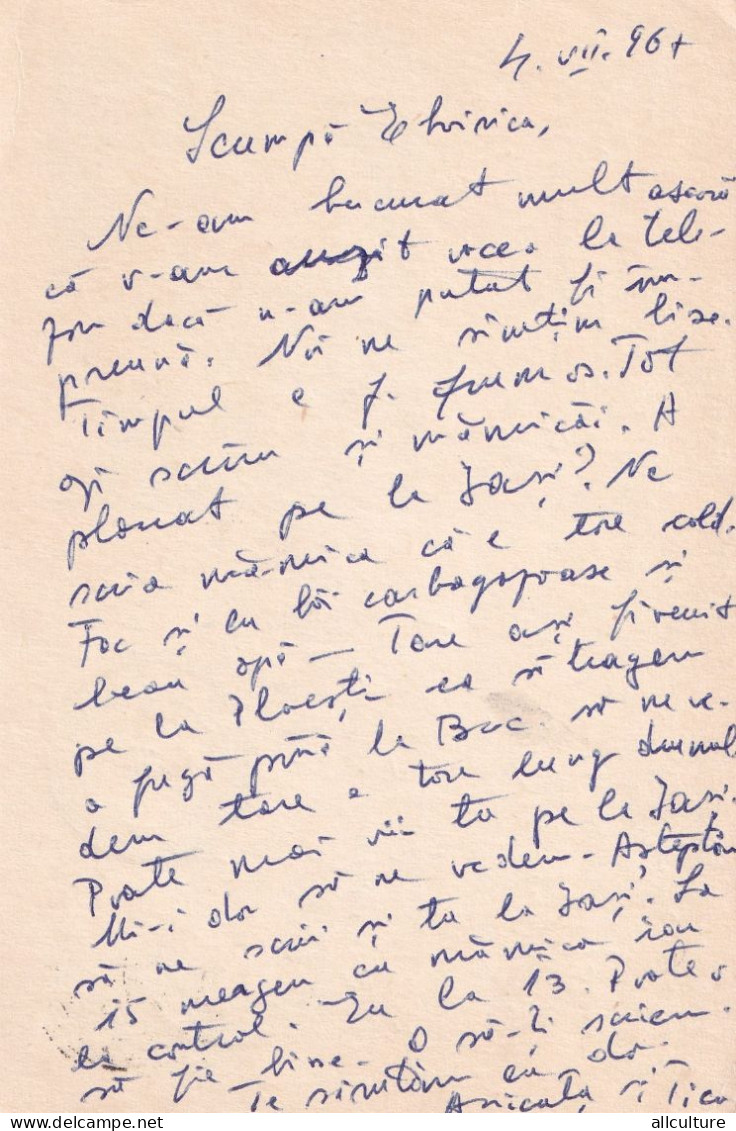 4. VII. 967
Scumpă Elvirica,
Ne-am bucurat mult aseară
că v-am auzit vocea la tele-
fon dacă n-am putut fi îm-
preună. Noi ne simțim bine.
Timpul e f. frumos. Tot
azi scriu și mămicăi. A
plouat pe la Iași? Ne
scria mămica că e tare cald.
Foc și cu băi carbogazoase și
beau apă - Tare aș fi venit
pe la Ploești ca să tragem
o fugă până la Buc. să ne ve-
dem tare e tare lung drumul
Poate mai vii tu pe la Iași.
Mi-i dor să ne vedem - Așteptăm
să ne scrii și tu la Iași. La
15 mergem cu mămica iou
la control. Eu la 13. Poate o
să fie bine - O să-ți scriem.
Te sărutăm cu dor
și Ticu
allculture